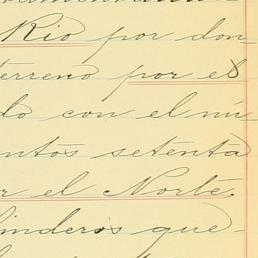 Rio por don-
terreno por el
do con el nú-
entos setenta
r el Norte,
linderos que-